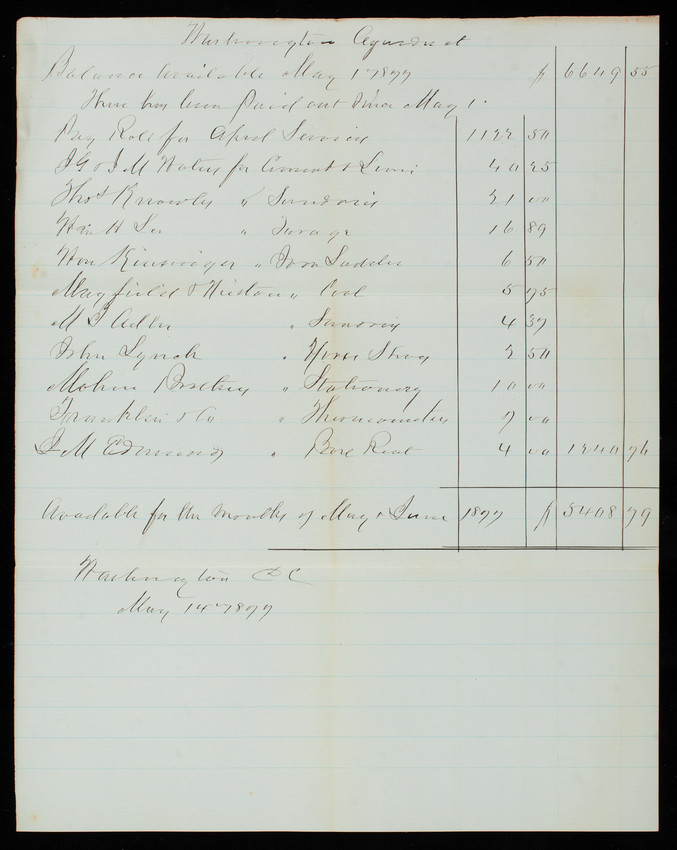 Washington Aqueduct
Balance available May 1st 1877 $ 6649 55
There has been paid out since May 1.
Pay Roll for April Services 1122 50
J G & J M Waters for Cement & Lime 40 25
Thos Knowles " Sundries 21 00
Wm H " Forage 16 89
Wm " Iron Ladder 6 50
Mayfield & Hieston " Coal 5 75
M I Adler " Sundries 4 37
John Lynch " Horse Shoes 2 50
Mohun Brothers " Stationery 10 00
Franklin & Co " Thermometers 7 00
J M Edmunds " Box Rent 4 00 1240 76
Available for the months of May & June 1877 $ 5408 79
Washington DC
May 14th 1877